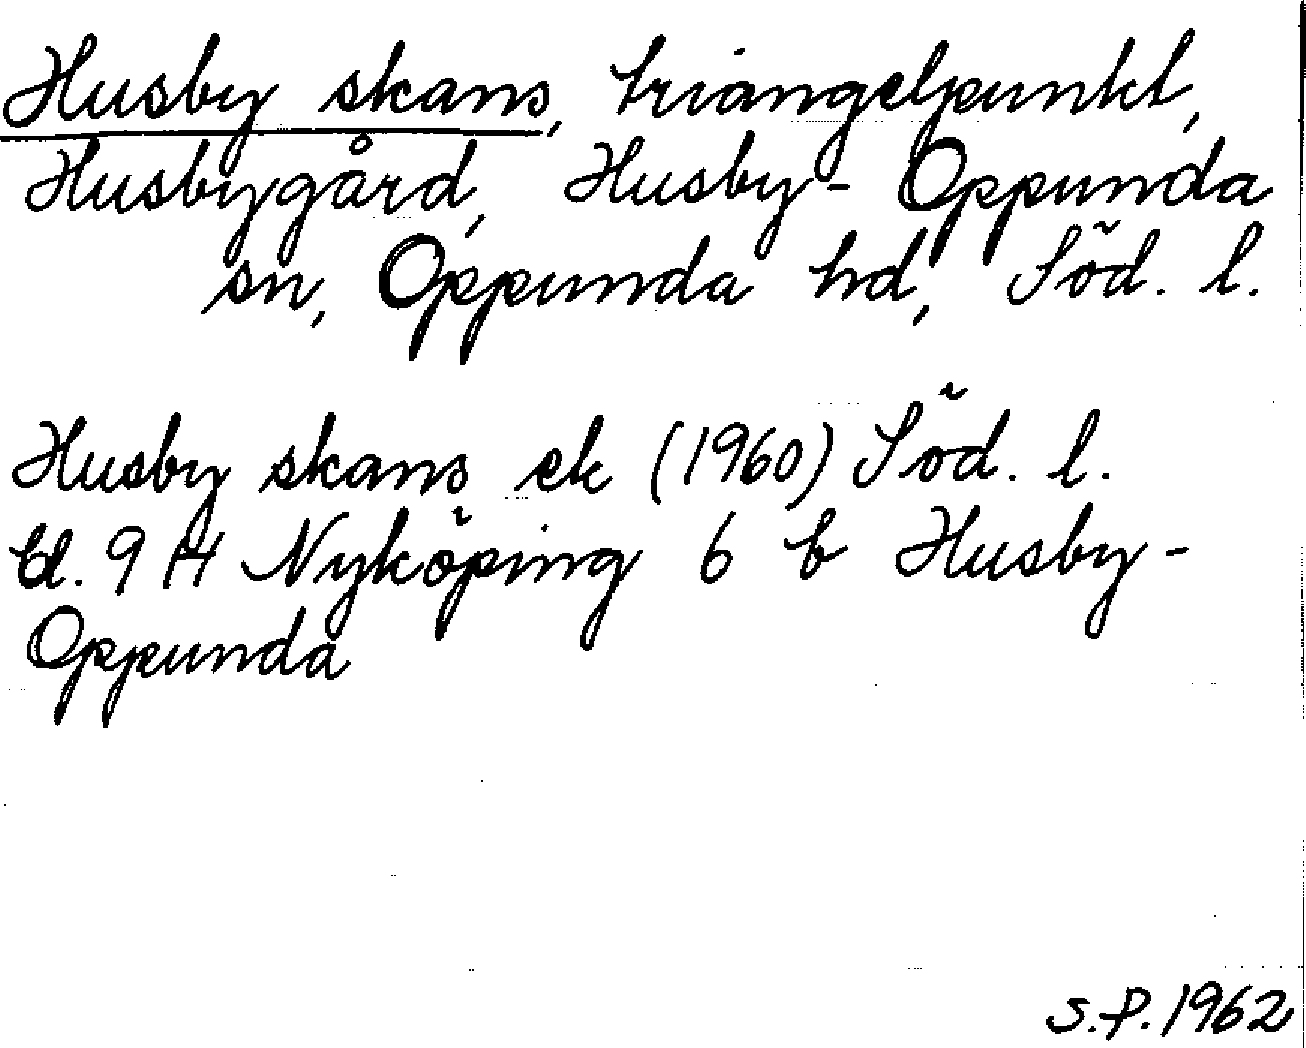 Husby skans, triangelpunkt,
Husbygård, Husby-Oppunda
sn, Oppunda hd, Söd. l.
Husby skans ek (1960) Söd. l.
bl. 9 H Nyköping 6 b Husby-
Oppunda
S.P. 1962